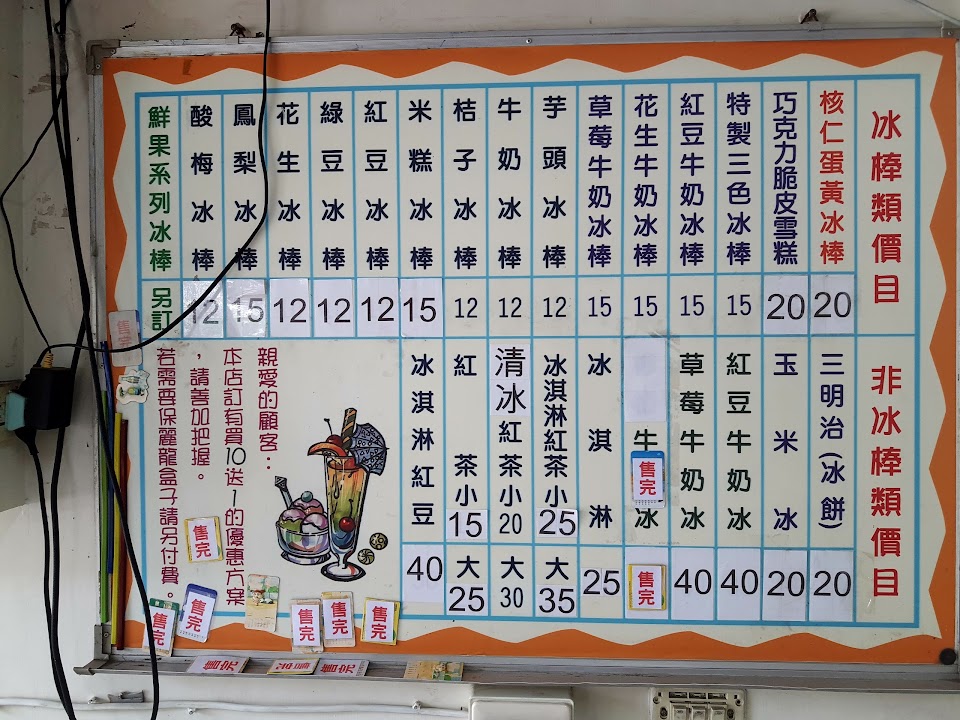 冰棒類價目
核仁蛋黃冰棒
20
巧克力脆皮雪糕
20
特製三色冰棒
15
紅豆牛奶冰棒
15
花生牛奶冰棒
15
草莓牛奶冰棒
15
芋頭冰棒
12
牛奶冰棒
12
桔子冰棒
12
米糕冰棒
15
紅豆冰棒
12
綠豆冰棒
12
花生冰棒
12
鳳梨冰棒
15
酸梅冰棒
12
鮮果系列冰棒
另訂
非冰棒類價目
三明治(冰餅)
20
玉米冰
20
紅豆牛奶冰
40
草莓牛奶冰
40
牛
售完
冰
售完
冰淇淋
25
冰淇淋紅茶小
25
大
35
清冰紅茶小
20
大
30
紅茶小
15
大
25
冰淇淋紅豆
40
親愛的顧客：
本店訂有買10送1的優惠方案
，請善加把握。
若需要保麗龍盒子請另付費。
售完
售完
售完
售完
售完
售完
售完
售完
售完